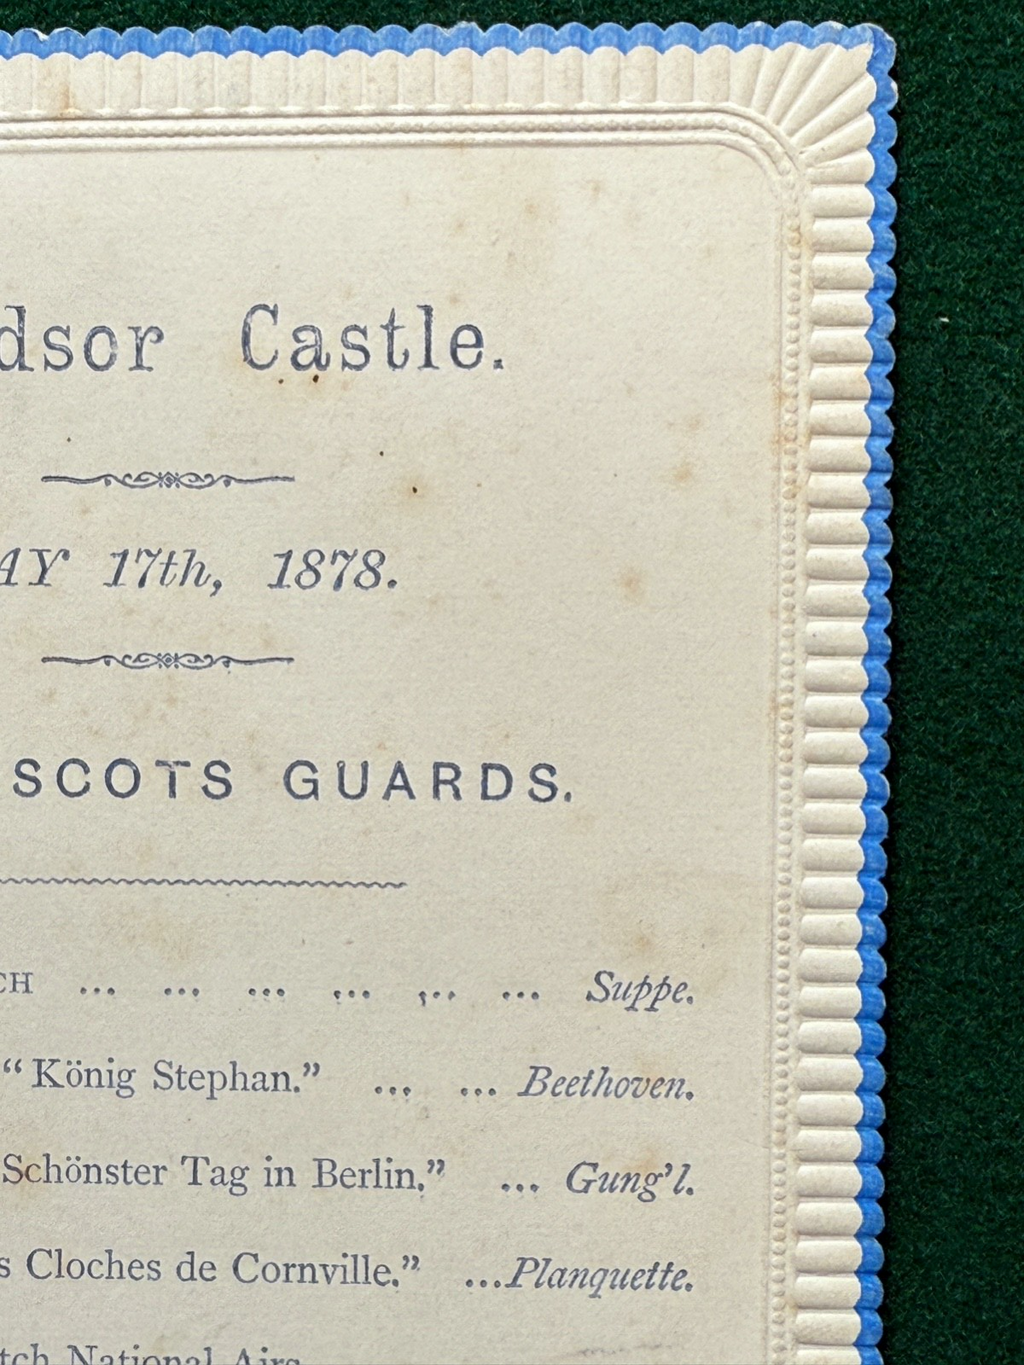 dsor Castle.
AY 17th, 1878.
SCOTS GUARDS.
CH ... ... ... ... ... ... Suppe.
“König Stephan.” ... ... Beethoven.
Schönster Tag in Berlin.” ... Gung’l.
s Cloches de Cornville.” ...Planquette.
tch National Airs